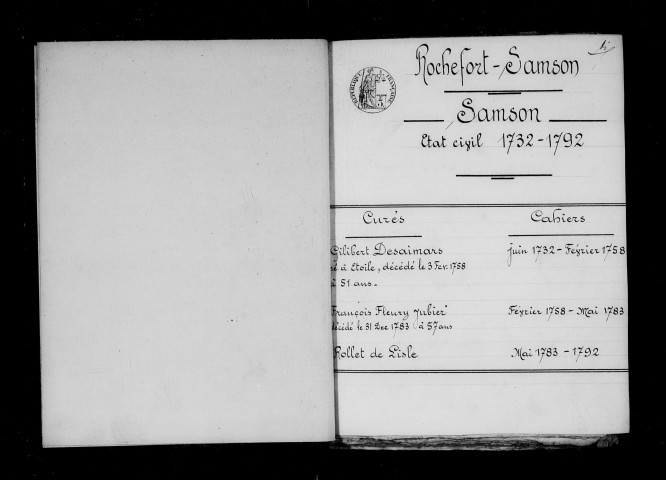 Rochefort-Samson
Samson
Etat civil 1732-1792
Curés
Cahiers
Gilibert Desaimars
juin 1732 - Février 1758
né à Etoile, décédé le 3 Fev. 1758
à 51 ans.
François Fleury Jubier
Février 1758 - Mai 1783
décédé le 31 Dec 1783 à 57 ans
Rollet de Lisle
Mai 1783 - 1792